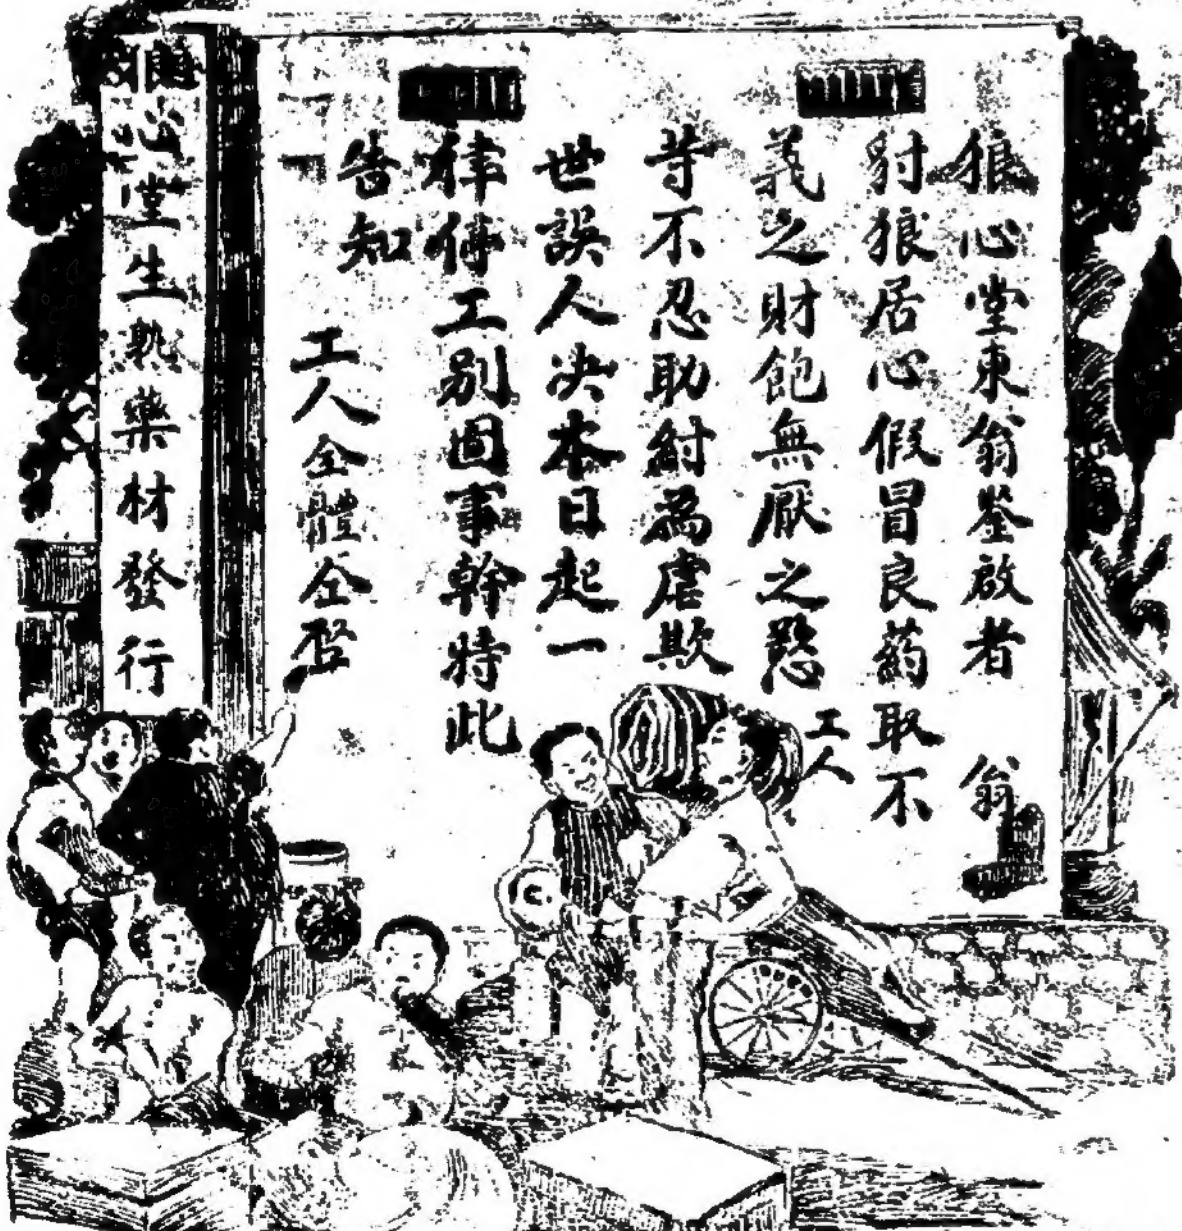 狼心堂東翁鉴啟者　翁
豺狼居心假冒良葯取不
義之財飽無厭之慾　工人
等不忍助紂為虐欺
世誤人决本日起一
律停工别圖事幹特此
告知
工人全體仝啓
狼心堂生熟藥材發行